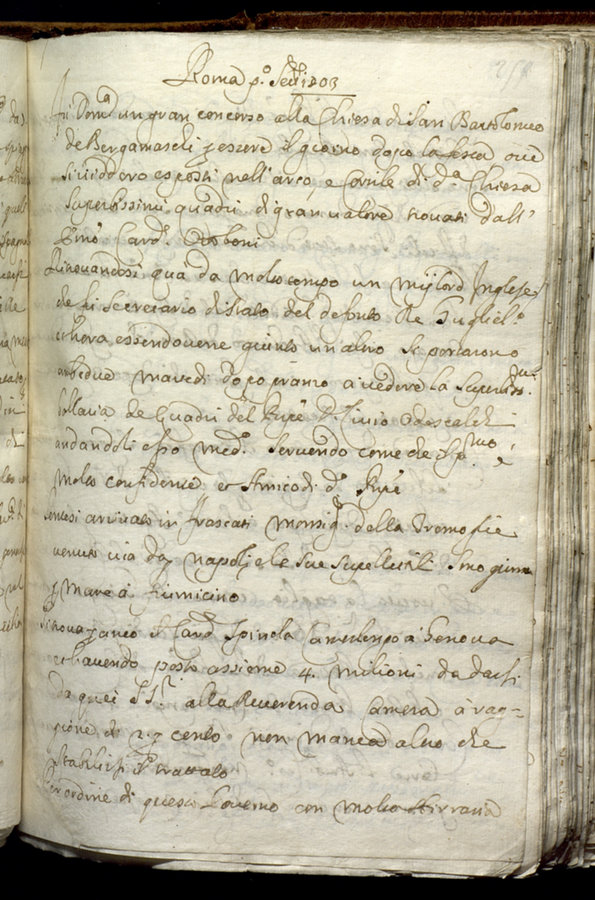 Roma p.º 7bre 1703
Fù Dom.ca un gran concorso alla Chiesa di San Bartolomeo
de Bergamaschi p essere il giorno dopo la festa ove
si viddero esposti nell'arco, e Cortile di d.ª Chiesa
superbissimi quadri di gran valore trovati dall'
Emo Card. Ottoboni
Ritrovandosi quà da molto tempo un Mylord Inglese
che fù secretario di stato del defonto Rè Guglielº
et hora essendovene giunto un altro si portarono
ambedue martedì dopo pranzo a vedere la superbissma
de quadri del Pnpe D. Livio Odescalchi
andandoli esso med.º servendo come che il pmo è
molto confidente et Amico di d.º Pnpe
sentesi arrivato in Frascati Monsig.r della Tremoglie
venuto via da Napoli e le sue supellettili sono giunte
p mare à Fiumicino
Si trova p anco il Card. Spinola Camerlengo à Genova
et havendo posto assieme 4. milioni da darsi
da quei SS.ri alla Reverenda Camera à rag=
gione di 2. p cento non manca altro che
stabilirsi il trattato
Per ordine di questo Governo con molta